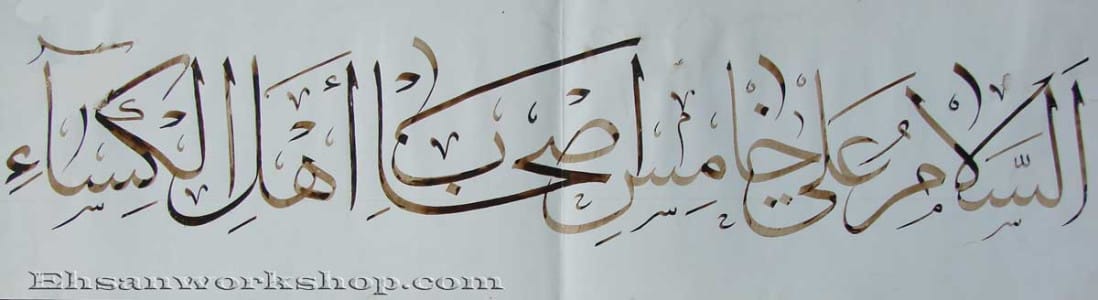 اَلسَّلامُ عَلى خامِسِ اَصْحابِ أَهْلِ الْكِسآءِ
Ehsanworkshop.com